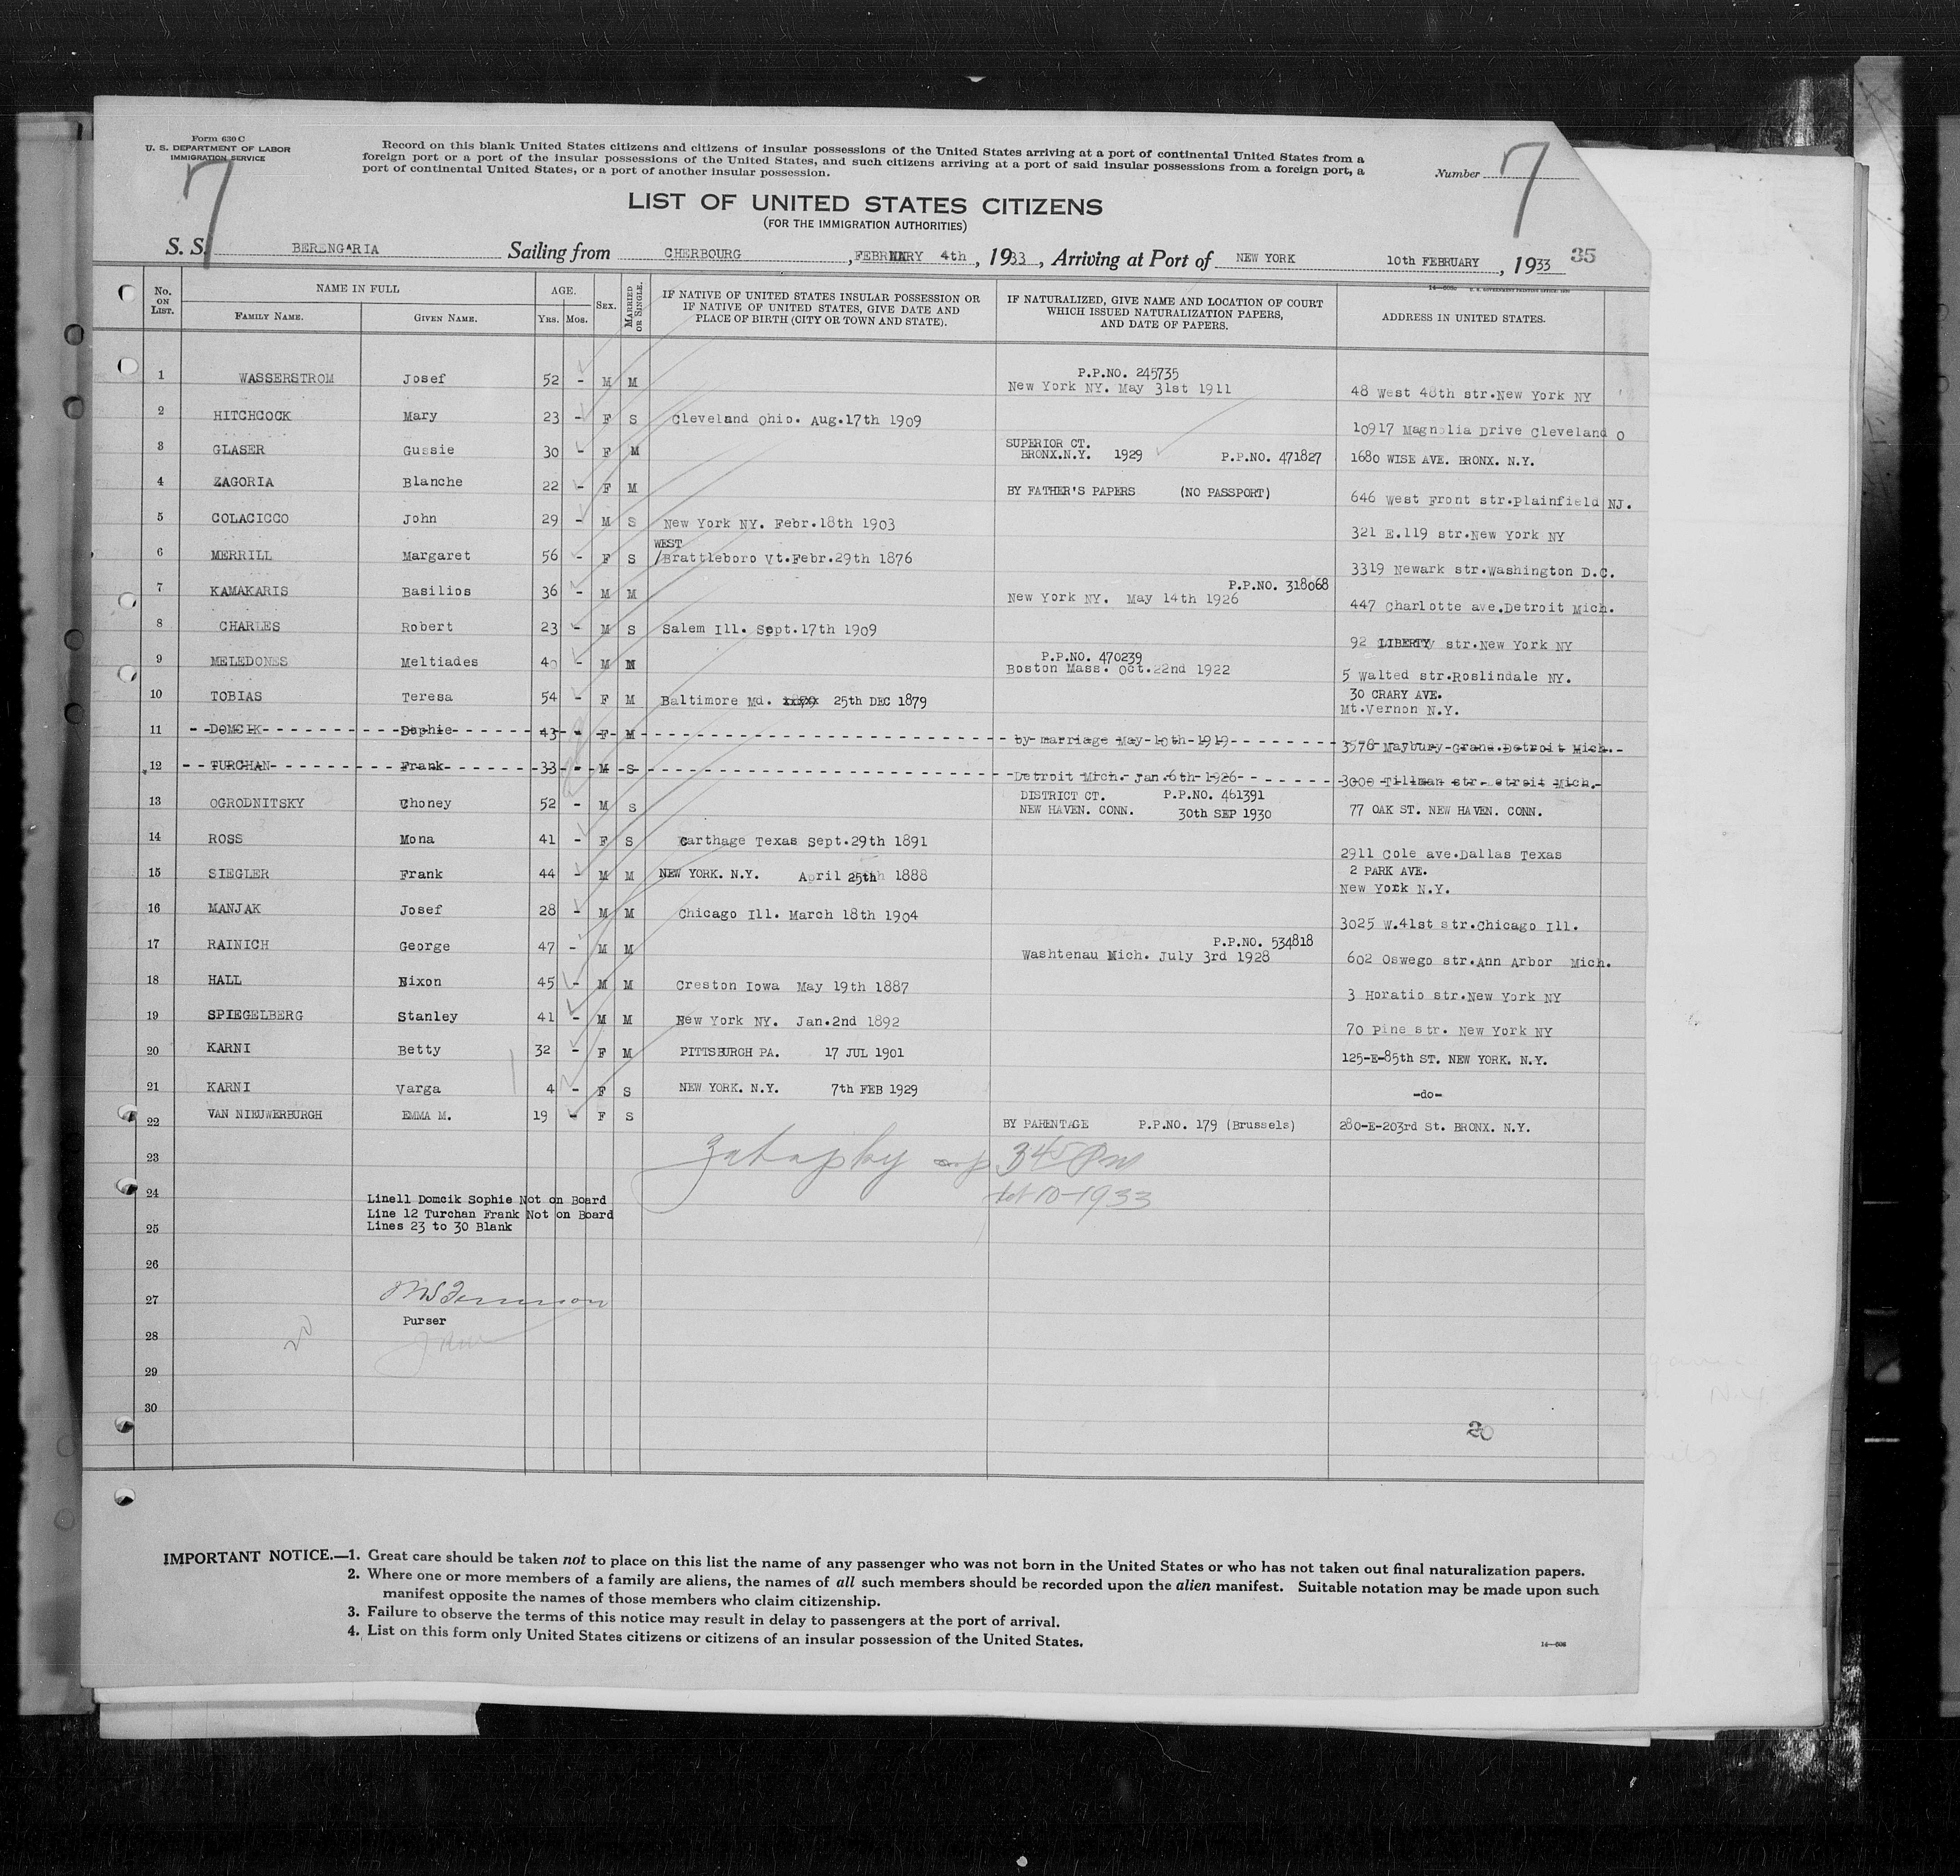 Form 630 C
U. S. DEPARTMENT OF LABOR
IMMIGRATION SERVICE
7
Record on this blank United States citizens and citizens of insular possessions of the United States arriving at a port of continental United States from a
foreign port or a port of the insular possessions of the United States, and such citizens arriving at a port of said insular possessions from a foreign port, a
port of continental United States, or a port of another insular possession.
Number 7
LIST OF UNITED STATES CITIZENS
(FOR THE IMMIGRATION AUTHORITIES)
S. S. BERENGARIA Sailing from CHERBOURG , FEBRUARY 4th , 1933 , Arriving at Port of NEW YORK 10th FEBRUARY , 1933 35
No. ON LIST. NAME IN FULL FAMILY NAME. GIVEN NAME. AGE. YRS. MOS. SEX. MARRIED OR SINGLE. IF NATIVE OF UNITED STATES INSULAR POSSESSION OR IF NATIVE OF UNITED STATES, GIVE DATE AND PLACE OF BIRTH (CITY OR TOWN AND STATE). IF NATURALIZED, GIVE NAME AND LOCATION OF COURT WHICH ISSUED NATURALIZATION PAPERS, AND DATE OF PAPERS. ADDRESS IN UNITED STATES.
1 WASSERSTROM Josef 52 - M M P.P.NO. 245735 New York NY. May 31st 1911 48 West 48th str.New York NY
2 HITCHCOCK Mary 23 - F S Cleveland Ohio. Aug.17th 1909 10917 Magnolia Drive Cleveland O
3 GLASER Gussie 30 - F M SUPERIOR CT. BRONX.N.Y. 1929 P.P.NO. 471827 1680 WISE AVE. BRONX. N.Y.
4 ZAGORIA Blanche 22 - F M BY FATHER'S PAPERS (NO PASSPORT) 646 West Front str.Plainfield NJ.
5 COLACICCO John 29 - M S New York NY. Febr.18th 1903 321 E.119 str.New York NY
6 MERRILL Margaret 56 - F S WEST /Brattleboro Vt.Febr.29th 1876 3319 Newark str.Washington D.C.
7 KAMAKARIS Basilios 36 - M M P.P.NO. 318068 New York NY. May 14th 1926 447 Charlotte ave.Detroit Mich.
8 CHARLES Robert 23 - M S Salem Ill. Sept.17th 1909 92 LIBERTY str.New York NY
9 MELEDONES Meltiades 40 - M M P.P.NO. 470239 Boston Mass. Oct.22nd 1922 5 Walted str.Roslindale NY.
10 TOBIAS Teresa 54 - F M Baltimore Md. 25th DEC 1879 30 CRARY AVE. Mt.Vernon N.Y.
11 DOMCIK Sophie 43 - F M by marriage May 10th 1919 3578 Maybury Grand.Detroit Mich.
12 TURCHAN Frank 33 - M S Detroit Mich. Jan.6th 1926 3000 Tillman str. etroit Mich.
13 OGRODNITSKY Choney 52 - M S DISTRICT CT. P.P.NO. 461391 NEW HAVEN. CONN. 30th SEP 1930 77 OAK ST. NEW HAVEN. CONN.
14 ROSS Mona 41 - F S Carthage Texas Sept.29th 1891 2911 Cole ave.Dallas Texas
15 SIEGLER Frank 44 - M M NEW YORK. N.Y. April 25th 1888 2 PARK AVE. New York N.Y.
16 MANJAK Josef 28 - M M Chicago Ill. March 18th 1904 3025 W.41st str.Chicago Ill.
17 RAINICH George 47 - M M P.P.NO. 534818 Washtenau Mich. July 3rd 1928 602 Oswego str.Ann Arbor Mich.
18 HALL Nixon 45 - M M Creston Iowa May 19th 1887 3 Horatio str.New York NY
19 SPIEGELBERG Stanley 41 - M M New York NY. Jan.2nd 1892 70 Pine str. New York NY
20 KARNI Betty 32 - F M PITTSBURGH PA. 17 JUL 1901 125-E-85th ST. NEW YORK. N.Y.
21 KARNI Varga 4 - F S NEW YORK. N.Y. 7th FEB 1929 -do-
22 VAN NIEUWERBURGH EMMA M. 19 - F S BY PARENTAGE P.P.NO. 179 (Brussels) 280-E-203rd St. BRONX. N.Y.
23 345 PM
24 10-1933
Line11 Domcik Sophie Not on Board
Line 12 Turchan Frank Not on Board
25 Lines 23 to 30 Blank
26
27
Purser
28
29
30
20
IMPORTANT NOTICE.—1. Great care should be taken not to place on this list the name of any passenger who was not born in the United States or who has not taken out final naturalization papers.
2. Where one or more members of a family are aliens, the names of all such members should be recorded upon the alien manifest. Suitable notation may be made upon such
manifest opposite the names of those members who claim citizenship.
3. Failure to observe the terms of this notice may result in delay to passengers at the port of arrival.
4. List on this form only United States citizens or citizens of an insular possession of the United States.
14—508